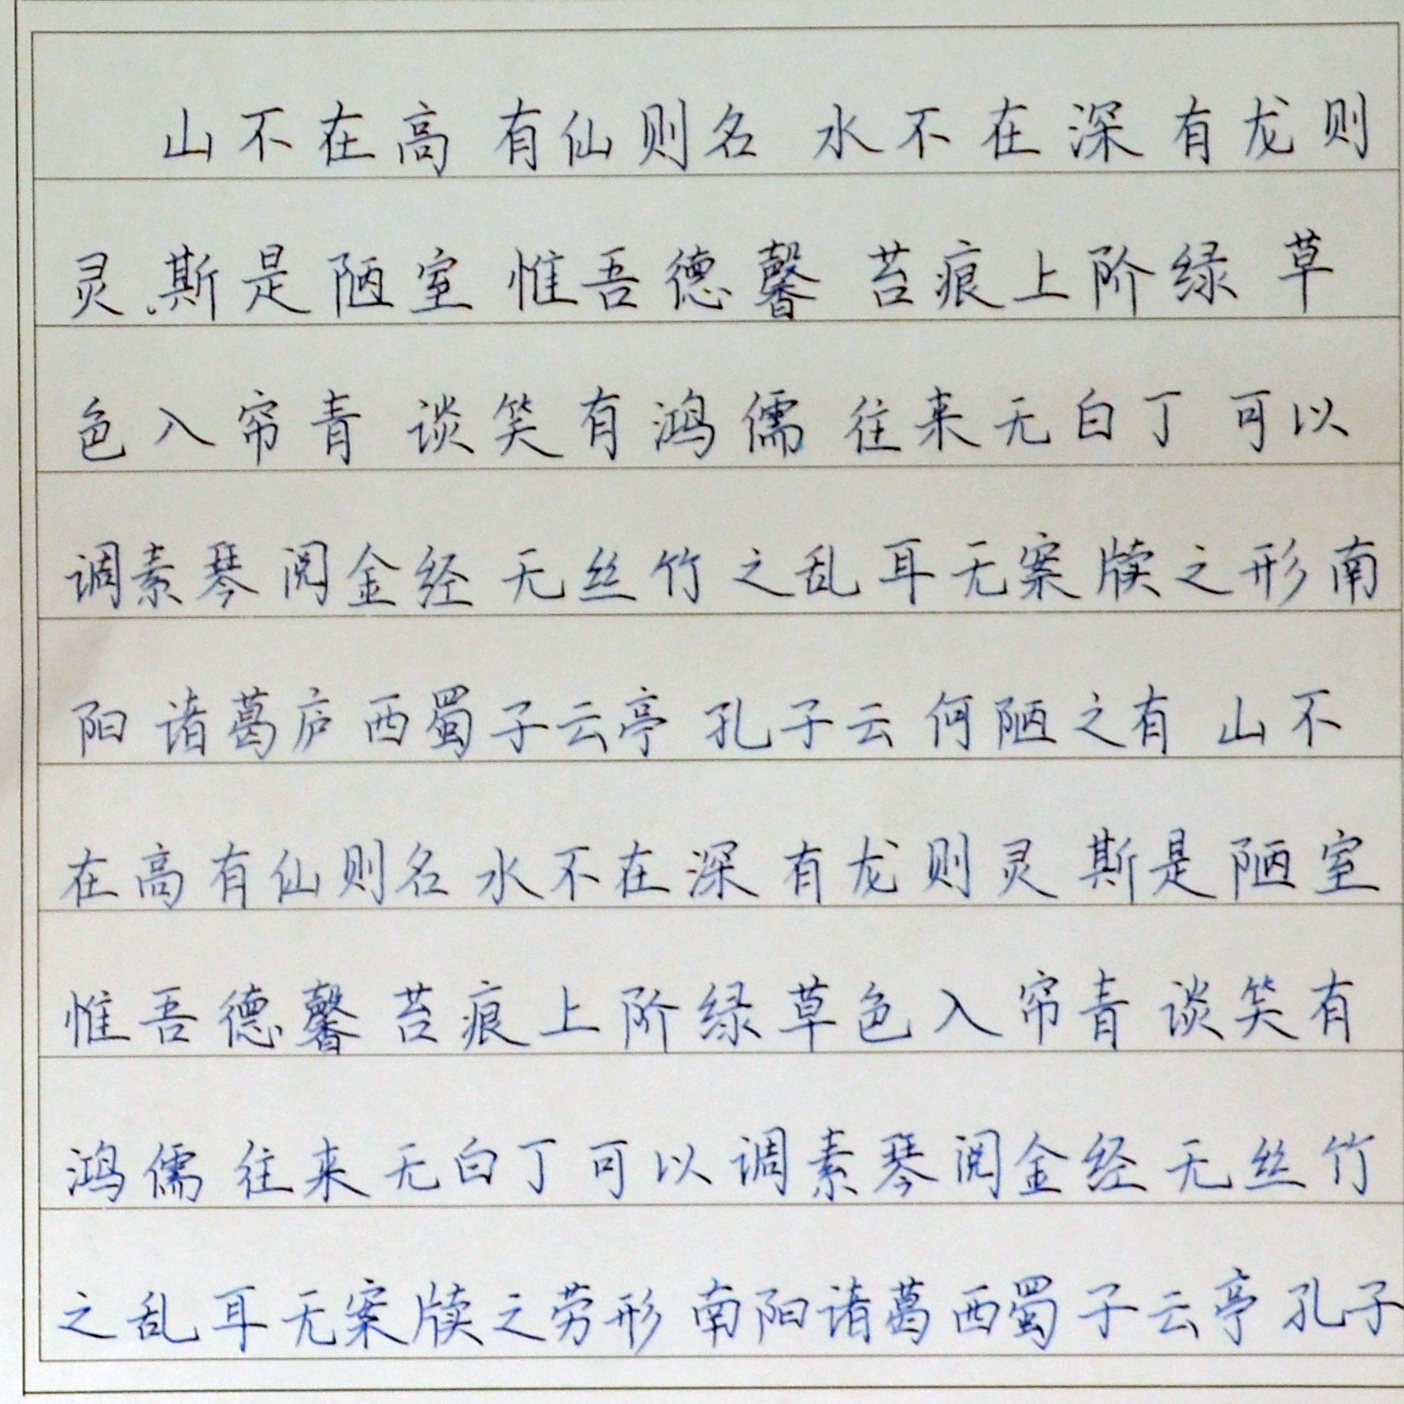 山不在高 有仙则名 水不在深 有龙则
灵.斯是陋室 惟吾德馨 苔痕上阶绿 草
色入帘青 谈笑有鸿儒 往来无白丁 可以
调素琴 阅金经 无丝竹之乱耳 无案牍之形 南
阳诸葛庐 西蜀子云亭 孔子云 何陋之有 山不
在高 有仙则名 水不在深 有龙则灵 斯是陋室
惟吾德馨 苔痕上阶绿 草色入帘青 谈笑有
鸿儒 往来无白丁 可以调素琴 阅金经 无丝竹
之乱耳 无案牍之劳形 南阳诸葛 西蜀子云亭 孔子